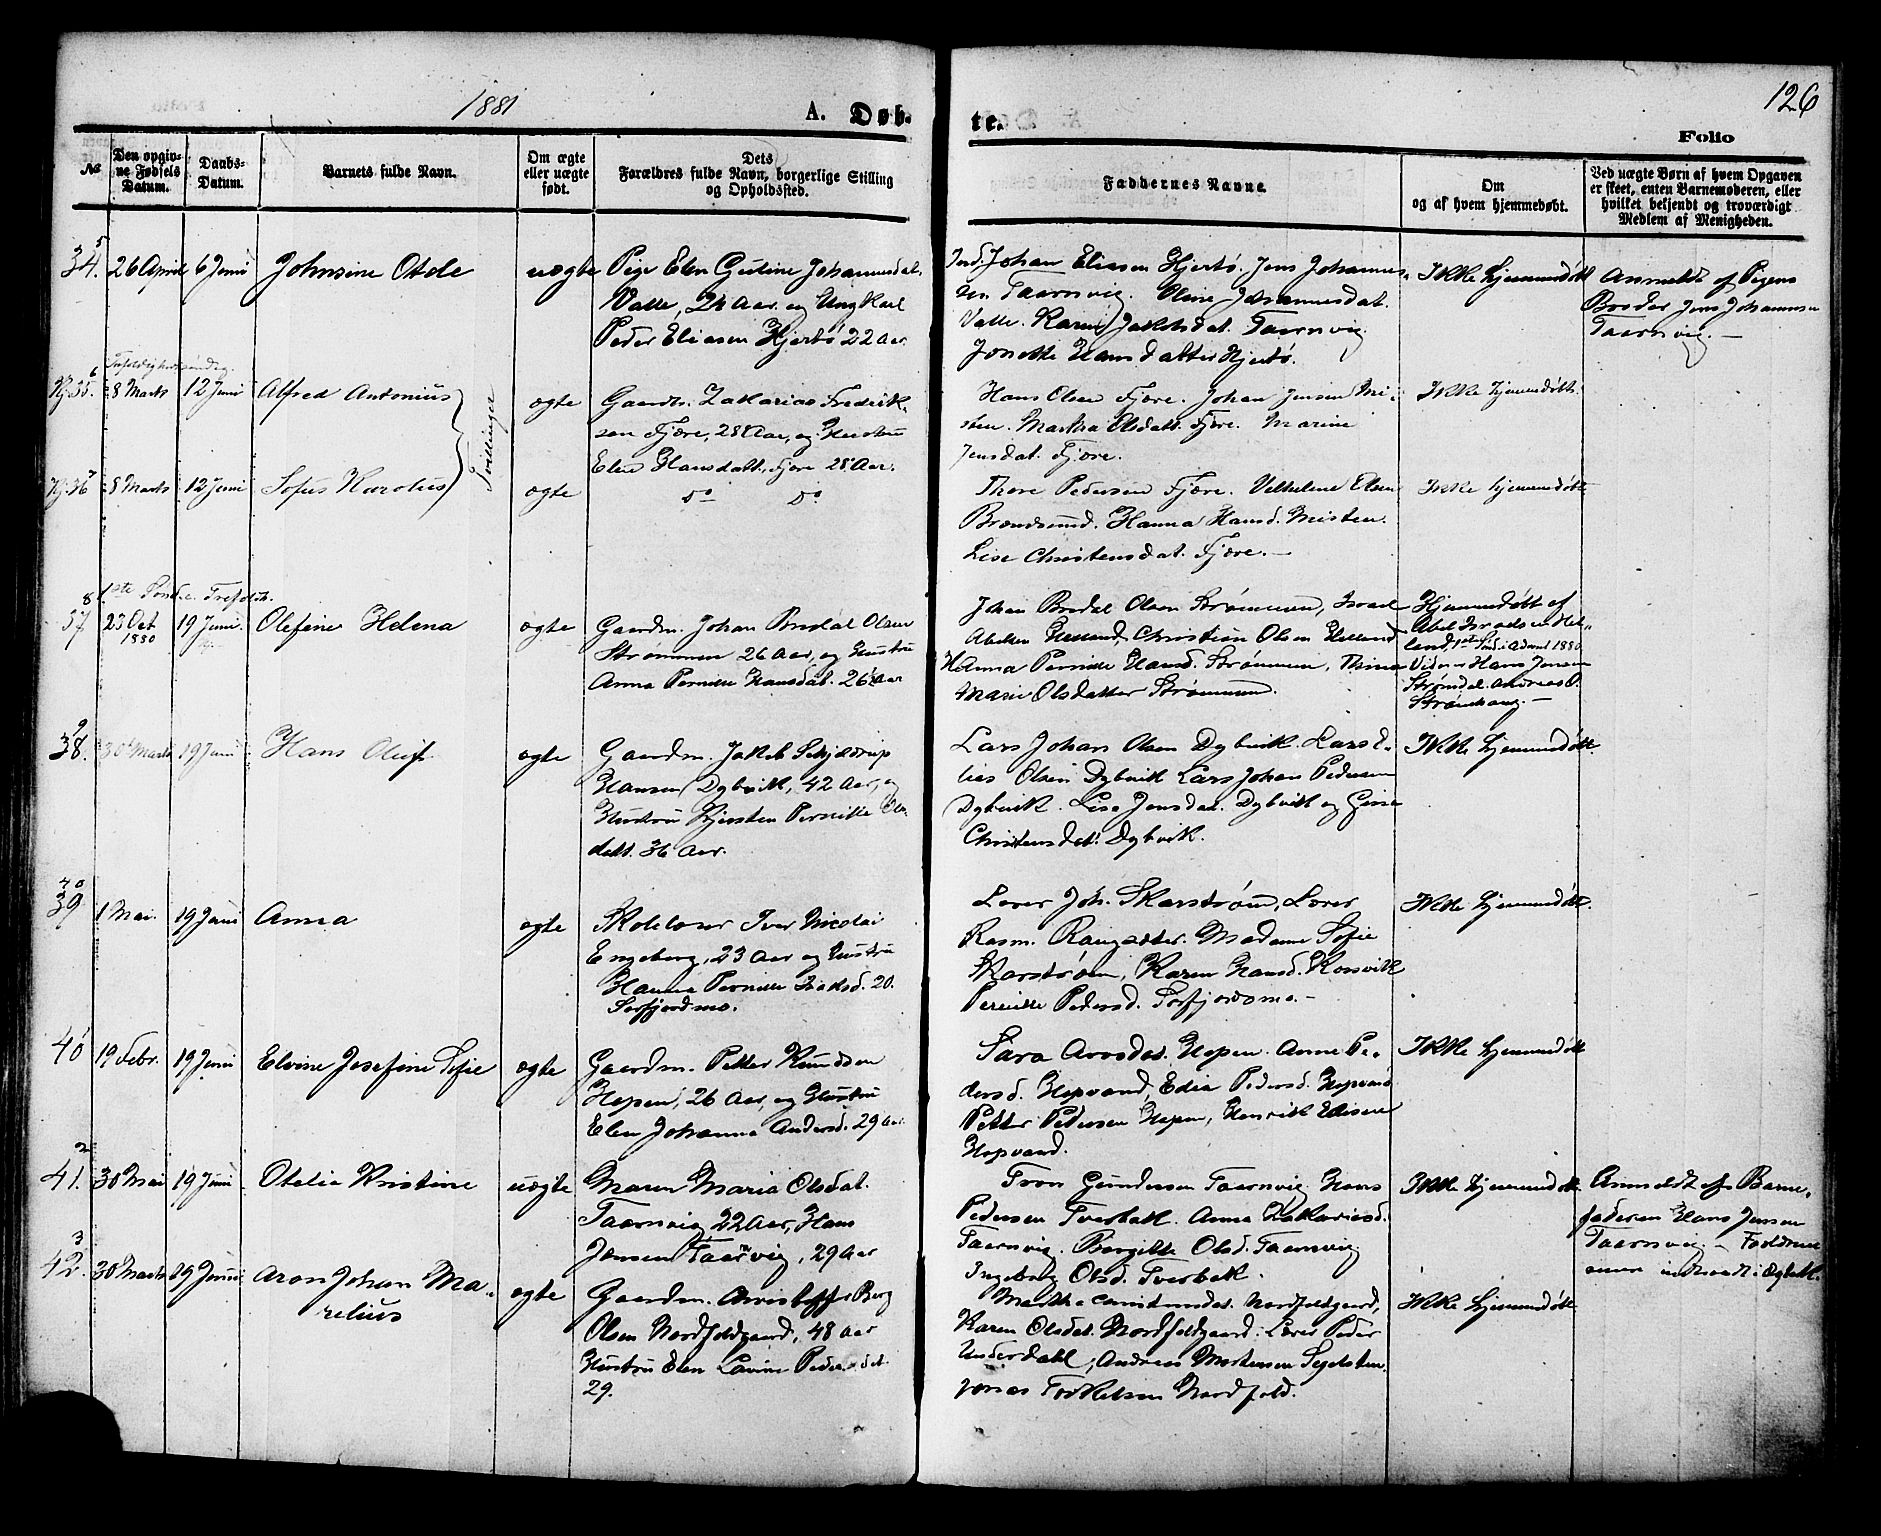 1881
A. Døb-
te.
126
Folio
№
Den opgiv-
ne Fødsels
Datum.
Daabs-
Datum.
Barnets fulde Navn.
Om ægte
eller uægte
født.
Dets
Forældres fulde Navn, borgerlige Stilling
og Opholdssted.
Faddernes Navne.
Om
og af hvem hjemmedøbt.
Ved uægte Børn af hvem Opgaven
er skeet, enten Barnemoderen, eller
hvilket bekjendt og troværdigt
Medlem af Menigheden.
5
34. 26 April 6 Juni Johnsine Otele uægte
Pige Elen Gutine Johannesdat.
Valle, 24 Aar, og Ungkarl
Peder Eliasen Hjertø 22 Aar.
Ind. Johan Eliasen Hjertø. Jens Johannes-
sen Taarnvig. Oline Johannesdat.
Valle. Karen Jakobsdat. Taarnvig
Jonette Hansdatter Hjertø.
Ikke hjemmedøbt
Anmeldt af Pigens
Broder Jens Johannesen
Taarnvig. —
Trefoldighedssøndag.
6
35. 8 Marts 12 Juni Alfred Antonius
Tvillinger
ægte
Gaardm. Zakarias Fredrik-
sen Fjære, 28 Aar, og Hustru
Elen Hansdatt. Fjære 28 Aar.
Hans Olsen Fjære. Johan Jensen Mi-
sten. Martha Olsdatt. Fjære. Marine
Jensdat. Fjære.
Ikke hjemmedøbt.
7
36 8 Marts 12 Juni Sofus Karolius ægte
do do
Thore Pedersen Fjære. Vilhelmine Elsen
Brændsund. Hanna Hansd. Misten.
Lise Christensdat. Fjære. —
Ikke hjemmedøbt
1ste Sønd. e. Trefoldh.
8
37 23 Oct 1880 19 Juni. Olefine Helena ægte
Gaardm. Johan Bredal Olsen
Strømmen 26 Aar, og Hustru
Anna Pernille Hansdat. 26 Aar
Johan Bredal Olsen Strømmen, Israel
Abelsen Helland, Christian Olsen Helland
Anna Pernille Hansd. Strømmen, Trina
Marie Olsdatter Strømmen.
Hjemmedøbt af
Abel Israelsen Hel-
land, 1ste Snd. i Advent 1880
Vidner Hans Jensen
Strømdal. Andreas O.
Strømhaug. —
9
38. 30 Marts 19 Juni Hans Oluf ægte
Gaardm. Jakob Schjelderup
Hansen Dybvik, 42 Aar, og
Hustru Kjersten Pernille Ols-
datt. 36 Aar.
Lars Johan Olsen Dybvik. Lars E-
lias Olsen Dybvik Lars Johan Pedersen
Dybvik. Lise Jensdat. Dybvik og
Christensdat. Dybvik.
Ikke hjemmedøbt.
40
39 1 Mai. 19 Juni Anna ægte
Skolelærer Iver Nicolai
Engeberg, 23 Aar og Hustru
Hanna Pernille Isaksd. 20.
Sørfjordmo.
Lærer Joh. Skarstrøm, Lærer
Rasm. Rangsæter. Madame Sofie
Skarstrøm, Karen Hansd. Rossvik
Pernille Pedersd. Sørfjordmo. —
Ikke hjemmedøbt.
1
40 19 Febr. 19 Juni Elvine Josefine Sofie ægte
Gaardm. Petter Knudsen
Hopen, 26 Aar, og Hustru
Elen Johanna Andersd. 29 Aar.
Sara Arosdat. Hopen. Anne Pe-
dersd. Hopvand, Edia Pedersd. Hopvand
Petter Pedersen Hopen, Henrik Edisen
Hopvand.
Ikke hjemmedøbt
2
41. 30 Mai 19 Juni Otelia Kristine uægte
Maren Maria Olsdat.
Taarnvig 22 Aar, Hans
Jensen Taarnvig, 29 Aar
Tron Gundersen Taarnvig Hans
Pedersen Tverbak. Anna Zakariasd.
Taarnvig. Borgilde Olsd. Taarnvig
Ingeborg Olsd. Tverbak.
Ikke hjemmedøbt
Anmeldt af Barne-
faderen Hans Jensen
Taarnvig — Forældrene
senere indtraadt i Ægtesk.
3
42. 30 Marts 19 Juni Aron Johan Ma-
relius
ægte
Gaardm. Christoffer Berg
Olsen Nordfoldgaard, 48 Aar
Hustru Elen Lavine Pedersdat
29.
Martha Christensdat. Nordfoldgaard,
Karen Olsdat. Nordfoldgaard. Lærer Peder
Underdahl, Andreas Mortensen Segelsten
Jonas Torkelsen Nordfold.
Ikke hjemmedøbt